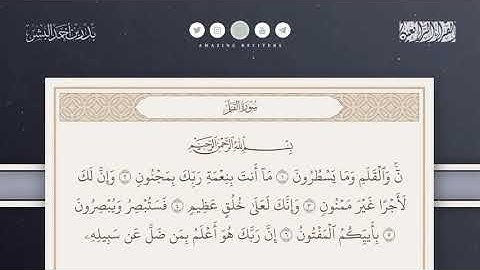 بدر بن أحمد البشر
AMAZING RECITERS
سورة القلم
بِسْمِ ٱللَّهِ ٱلرَّحْمَٰنِ ٱلرَّحِيمِ
نٓ وَٱلْقَلَمِ وَمَا يَسْطُرُونَ ١ مَآ أَنتَ بِنِعْمَةِ رَبِّكَ بِمَجْنُونٍ ٢ وَإِنَّ لَكَ
لَأَجْرًا غَيْرَ مَمْنُونٍ ٣ وَإِنَّكَ لَعَلَىٰ خُلُقٍ عَظِيمٍ ٤ فَسَتُبْصِرُ وَيُبْصِرُونَ
٥ بِأَييِّكُمُ ٱلْمَفْتُونُ ٦ إِنَّ رَبَّكَ هُوَ أَعْلَمُ بِمَن ضَلَّ عَن سَبِيلِهِۦ